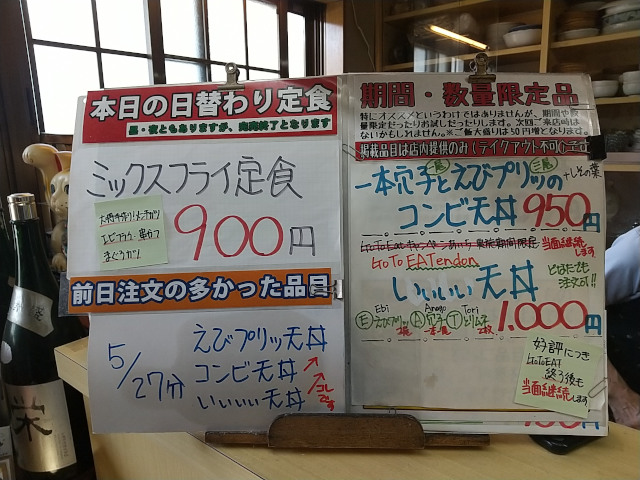 本日の日替わり定食
昼・夜ともありますが、完売終了となります
ミックスフライ定食
エビフライ・串カツ
900円
前日注文の多かった品目
5/27分
えびプリッ天丼
コンビ天丼
いいいい天丼
コレです
期間・数量限定品
特にオススメというわけではありませんが、期間や数
量限定だったりお試しだったりします。次回ご来店時は
ないかもしれません。※ご飯大盛りは50円増となります。
掲載品目は店内提供のみ(テイクアウト不可)
一本穴子とえびプリッの
+しその葉
コンビ天丼 950円
GoToEatキャンペーンあいち 実施期間限定 当面継続します
GoTo EATendon
いいいい天丼
どなたでも
注文可!!
Ebi Anago Tori
1.000円
好評につき
GoToEAT
終了後も
当面継続します
栄